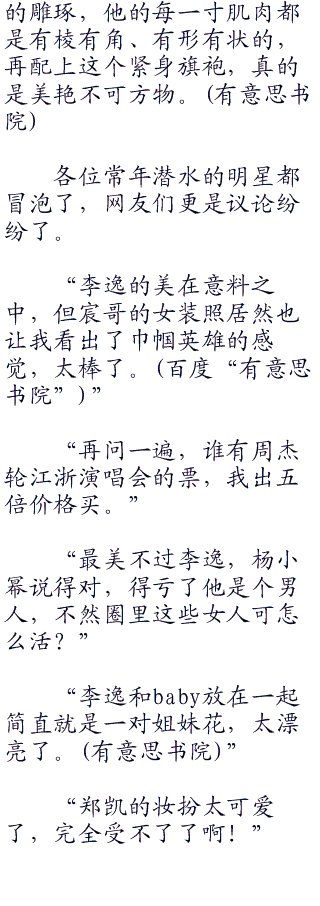 的雕琢，他的每一寸肌肉都
是有棱有角、有形有状的，
再配上这个紧身旗袍，真的
是美艳不可方物。(有意思书
院)
各位常年潜水的明星都
冒泡了，网友们更是议论纷
纷了。
“李逸的美在意料之
中，但宸哥的女装照居然也
让我看出了巾帼英雄的感
觉，太棒了。(百度“有意思
书院”)”
“再问一遍，谁有周杰
轮江浙演唱会的票，我出五
倍价格买。”
“最美不过李逸，杨小
幂说得对，得亏了他是个男
人，不然圈里这些女人可怎
么活？”
“李逸和baby放在一起
简直就是一对姐妹花，太漂
亮了。(有意思书院)”
“郑凯的妆扮太可爱
了，完全受不了了啊！”